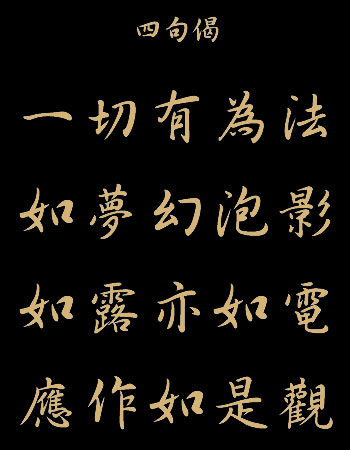 四句偈
一切有為法
如夢幻泡影
如露亦如電
應作如是觀